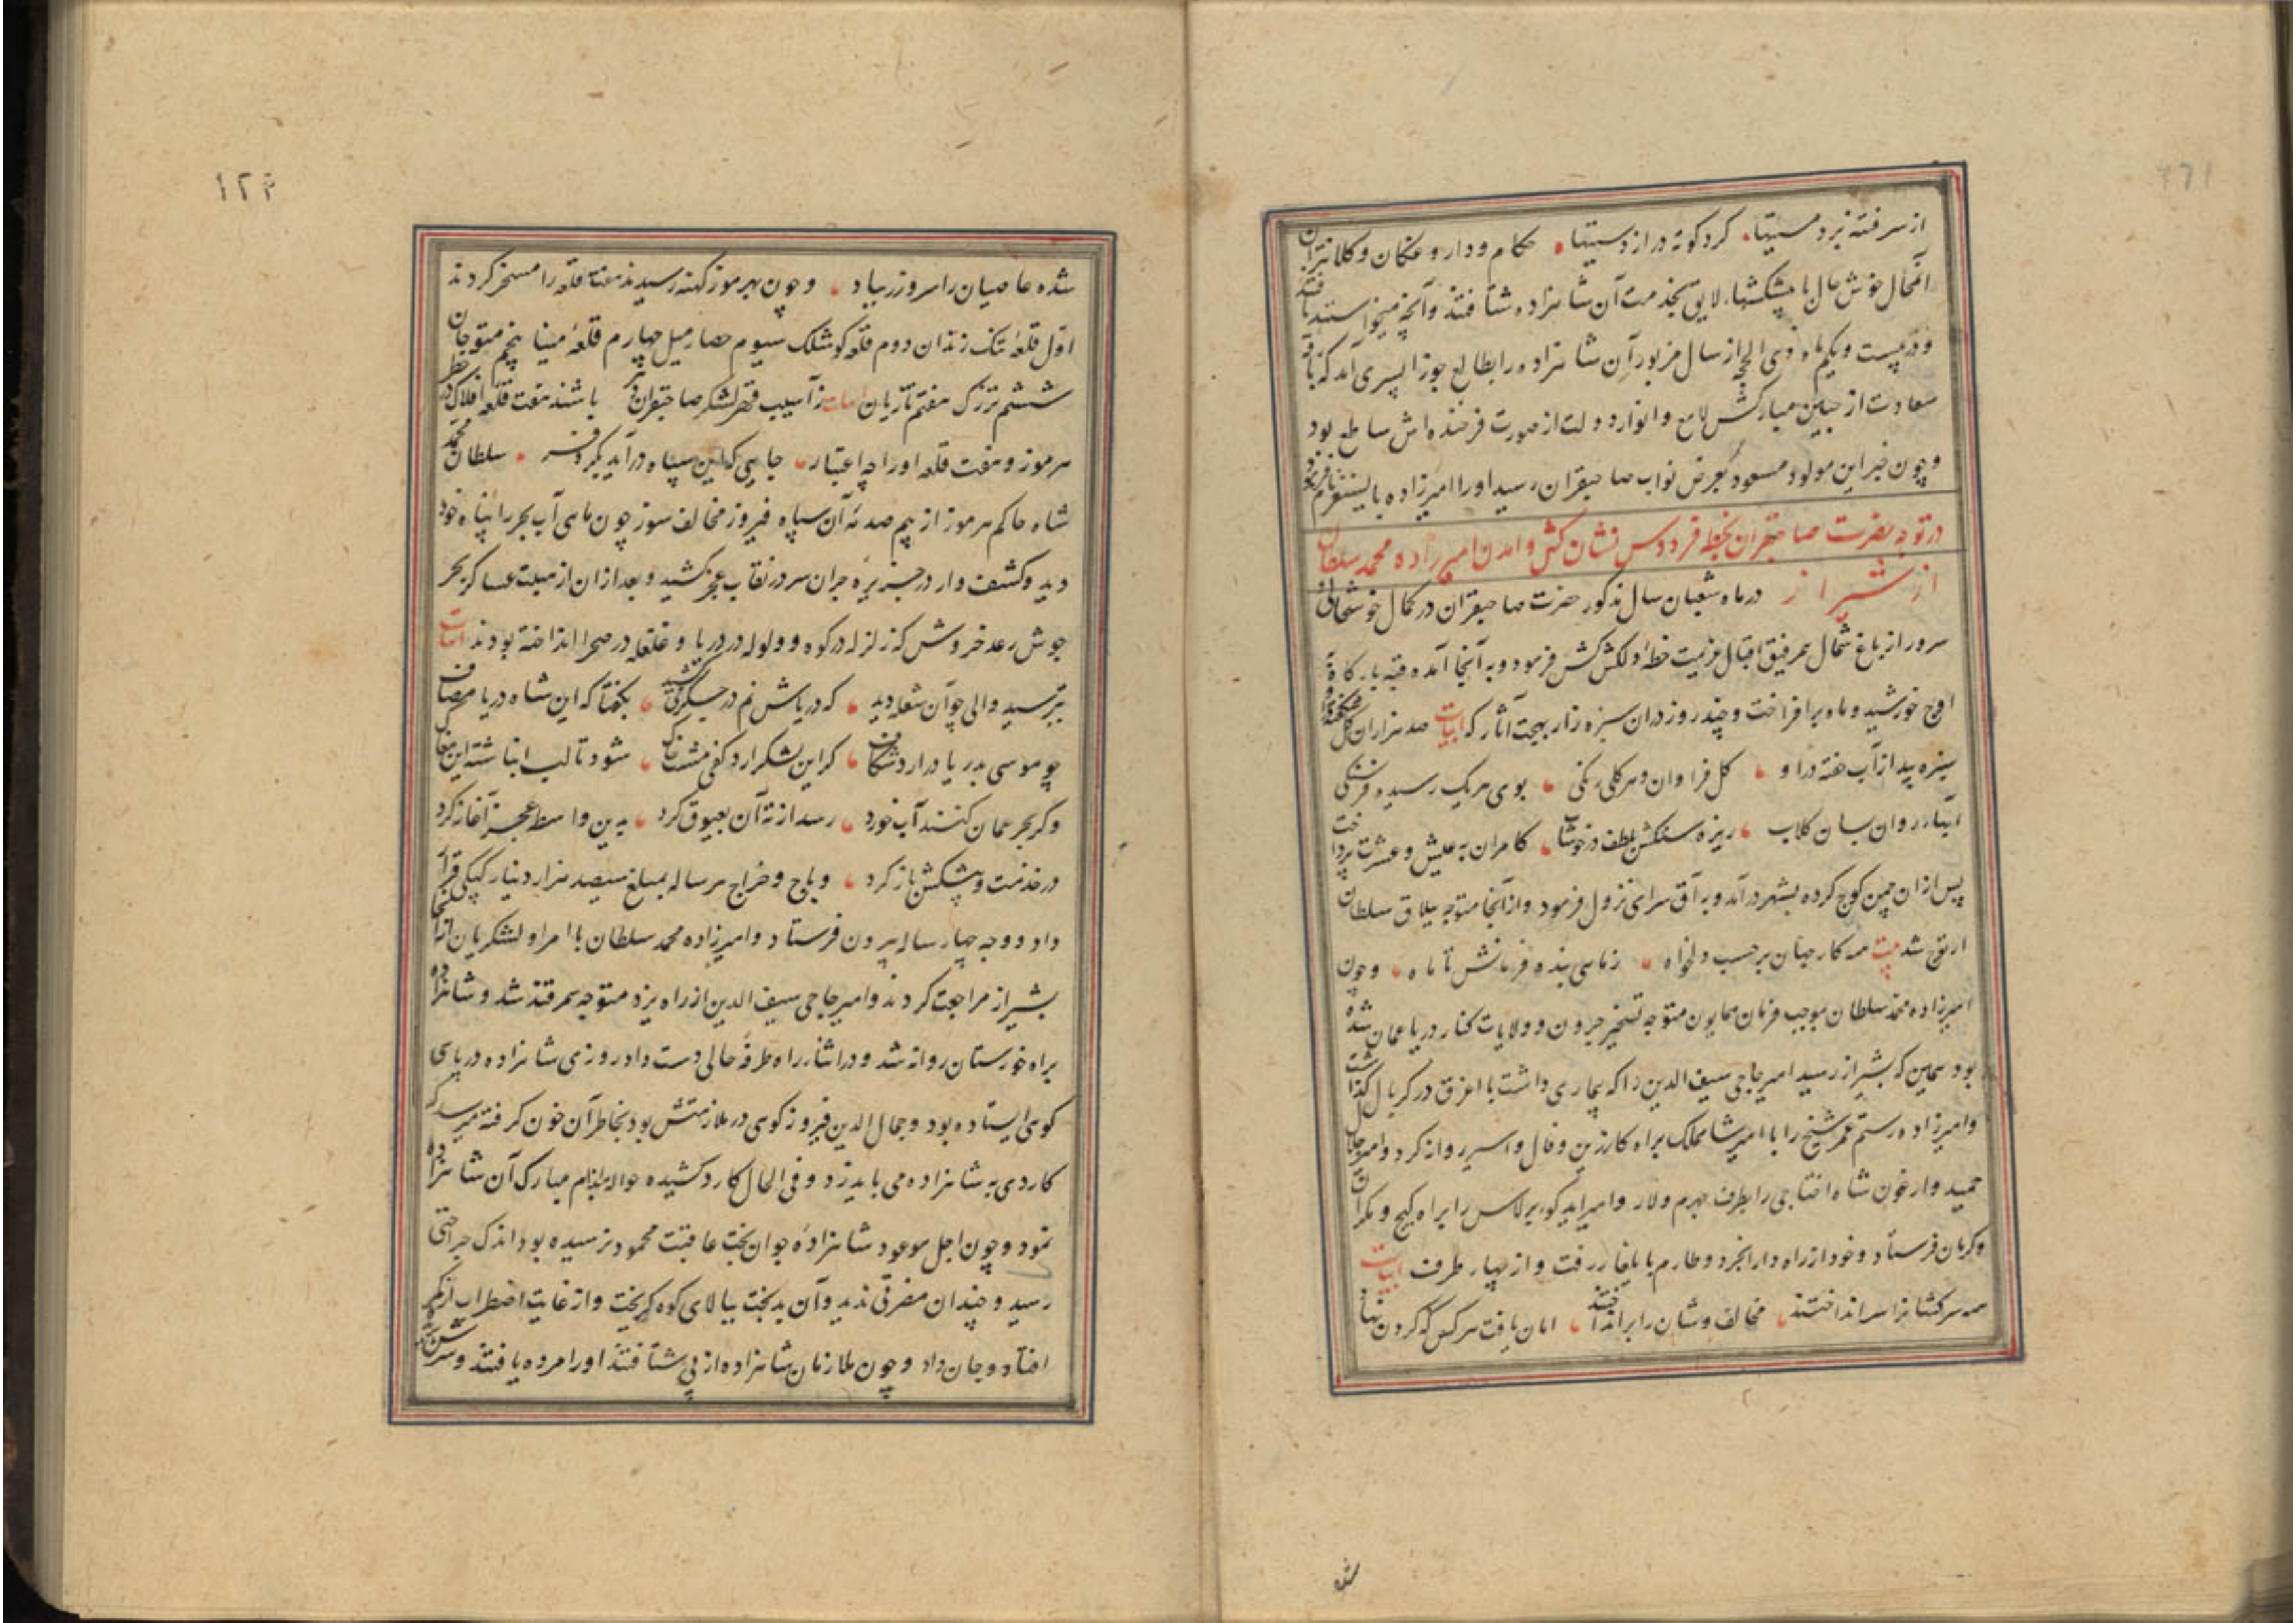 از سر فتنه برد مستیها کرد کوته دراز دستیها حکام و داروغکان و کلانتران
آنمحال خوش حال با پیشکشهاء لایق بخدمت آن شاهزاده شتافتند و آنچه میخواستند یافتند
و در بیست و یکم ماه ذی الحجه از سال مزبور آن شاهزاده را بطالع جوزا پسری آمد که
سعادت از جبین مبارکش لامع و انوار دولت از صورت فرخنده اش ساطع بود
و چون خبر این مولود مسعود بعرض نواب صاحبقران رسید او را امیرزاده بایسنغر نام فرمود
در توجه حضرت صاحبقران بخطه فردوس نشان کش و آمدن امیرزاده محمد سلطان
از شیراز در ماه شعبان سال مذکور حضرت صاحبقران در کمال خوشحالی و
سرور از باغ شمال همرفیق اقبال عزیمت خطهٔ دلکش کش فرمود و به آنجا آمده قبه بارکاه
اوج خورشید و ماه برافراخت و چند روز در ان سبزه زار بهجت آثار که ابیات صد هزاران کل شکفته درو
سبزه بیدار آب خفته در او کل فراوان و هر کلی رنکی بوی هر یک رسیده فرسنکی
آبهاء روان بسان کلاب ریزه سنکش بلطف در خوشاب کامران به عیش و عشرت پرداخت
پس از ان چمن کوچ کرده بشهر درآمد و به آق سرای نزول فرمود و از آنجا متوجه ییلاق سلطان
ارتوج شد بیت همه کار جهان بر حسب دلخواه ز ماهی بنده فرمانش تا ماه و چون
امیرزاده محمد سلطان بموجب فرمان همایون متوجه تسخیر جرون و ولایات کنار دریا عمان شده
بود همین که بشیراز رسید امیر حاجی سیف الدین را که بیماری داشت با اغرق در کربال گذاشت
و امیرزاده رستم عمر شیخ را با امیر شاهملک براه کارزین و فال و اسیر روانه کرد و امیر جلال
حمید و ارغون شاه اختاجی را بطرف جهرم و لار و امیر ایدکو برلاس را براه کیج و مکران
و کرمان فرستاد و خود از راه دارابجرد و طارم با یلغار رفت و از چهار طرف ابیات
همه سرکشانرا سر انداختند مخالف وشان را برانداختند امان یافت هر کس که کردن نهاد
شده عاصیان را سر و زر بباد و چون بهرموز کهنه رسیدند هفت قلعه را مسخر کردند
اول قلعهٔ تنک زندان دوم قلعه کوشکک سیوم حصار میل چهارم قلعهٔ مینا پنجم منوجان
ششم ترزک هفتم تازیان ابیات ز آسیب قهر لشکر صاحبقران باشند هفت قلعه افلاک در خطر
هرموز و هفت قلعه او را چه اعتبار جایی که این سپاه درآید بکر و فر سلطان محمد
شاه حاکم هرموز از بیم صدمهٔ آن سپاه فیروز مخالف سوز چون ماهی آب بحر را پناه خود
دید و کشف وار در جزیرهٔ جران سر در نقاب عجز کشید و بعد از ان از هیبت عساکر بحر
جوش رعد خروش که زلزله در کوه و ولوله در دریا و غلغله در صحرا انداخته بودند ابیات
بترسید والی چو آن شعله دید که دریاش نم در جکر می کشید بکفتا که این شاه دریا مصاف
چو موسی بدریا درارد شکاف کر این لشکر ارد کفی مشت خاک شود تا لب انباشته این مغاک
و کر بحر عمان کنند آب خورد رسد از تهٔ آن بعیوق کرد بدین واسطه عجز آغاز کرد
در خدمت و پیشکش باز کرد و باج و خراج هر ساله بمبلغ سیصد هزار دینار کپکی قرار
داد و وجه چهار ساله بیرون فرستاد و امیرزاده محمد سلطان با امرا و لشکریان از انجا
بشیراز مراجعت کردند و امیر حاجی سیف الدین از راه یزد متوجه سمرقند شد و شاهزاده
براه خوزستان روانه شد و در اثناء راه طرفه حالی دست داد روزی شاهزاده در پای
کوهی ایستاده بود و جمال الدین فیروزکوهی در ملازمتش بود بخاطر آن خون کرفته میرسد که
کاردی به شاهزاده می باید زد و فی الحال کارد کشیده حواله اندام مبارک آن شاهزاده
نمود و چون اجل موعود شاهزادهٔ جوان بخت عاقبت محمود نرسیده بود اندک جراحتی
رسید و چندان مضرتی ندید و آن بدبخت ببالای کوه کریخت و از غایت اضطراب از کمر
افتاد و جان داد و چون ملازمان شاهزاده از پی شتافتند او را مرده یافتند و سرش